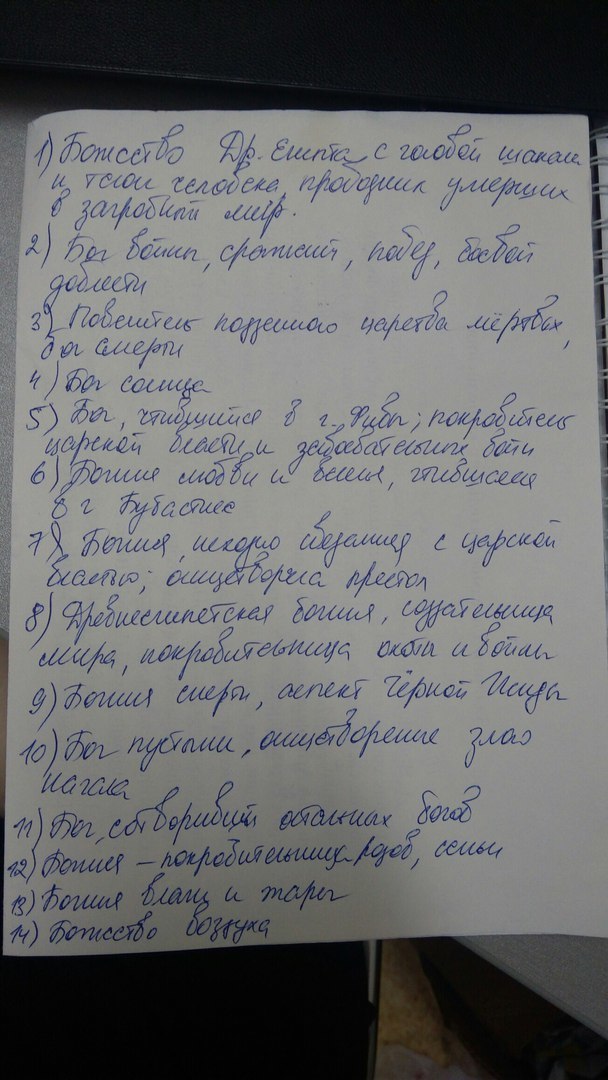 1) Божество Др. Египта с головой шакала
и телом человека, проводник умерших
в загробный мир.
2) Бог войны, сражений, побед, боевой
доблести
3) Повелитель подземного царства мёртвых,
бог смерти
4) Бог солнца
5) Бог, чтившийся в г. Фивы; покровитель
царской власти и завоевательных войн
6) Богиня любви и веселья, чтившаяся
в г Бубастис
7) Богиня, искони сведенная с царской
властью; олицетворяла престол
8) Древнеегипетская богиня, создательница
мира, покровительница охоты и войны
9) Богиня смерти, аспект Чёрной Исиды
10) Бог пустыни, олицетворение злого
начала
11) Бог, сотворивший остальных богов
12) Богиня – покровительница родов, семьи
13) Богиня влаги и жары
14) Божество воздуха